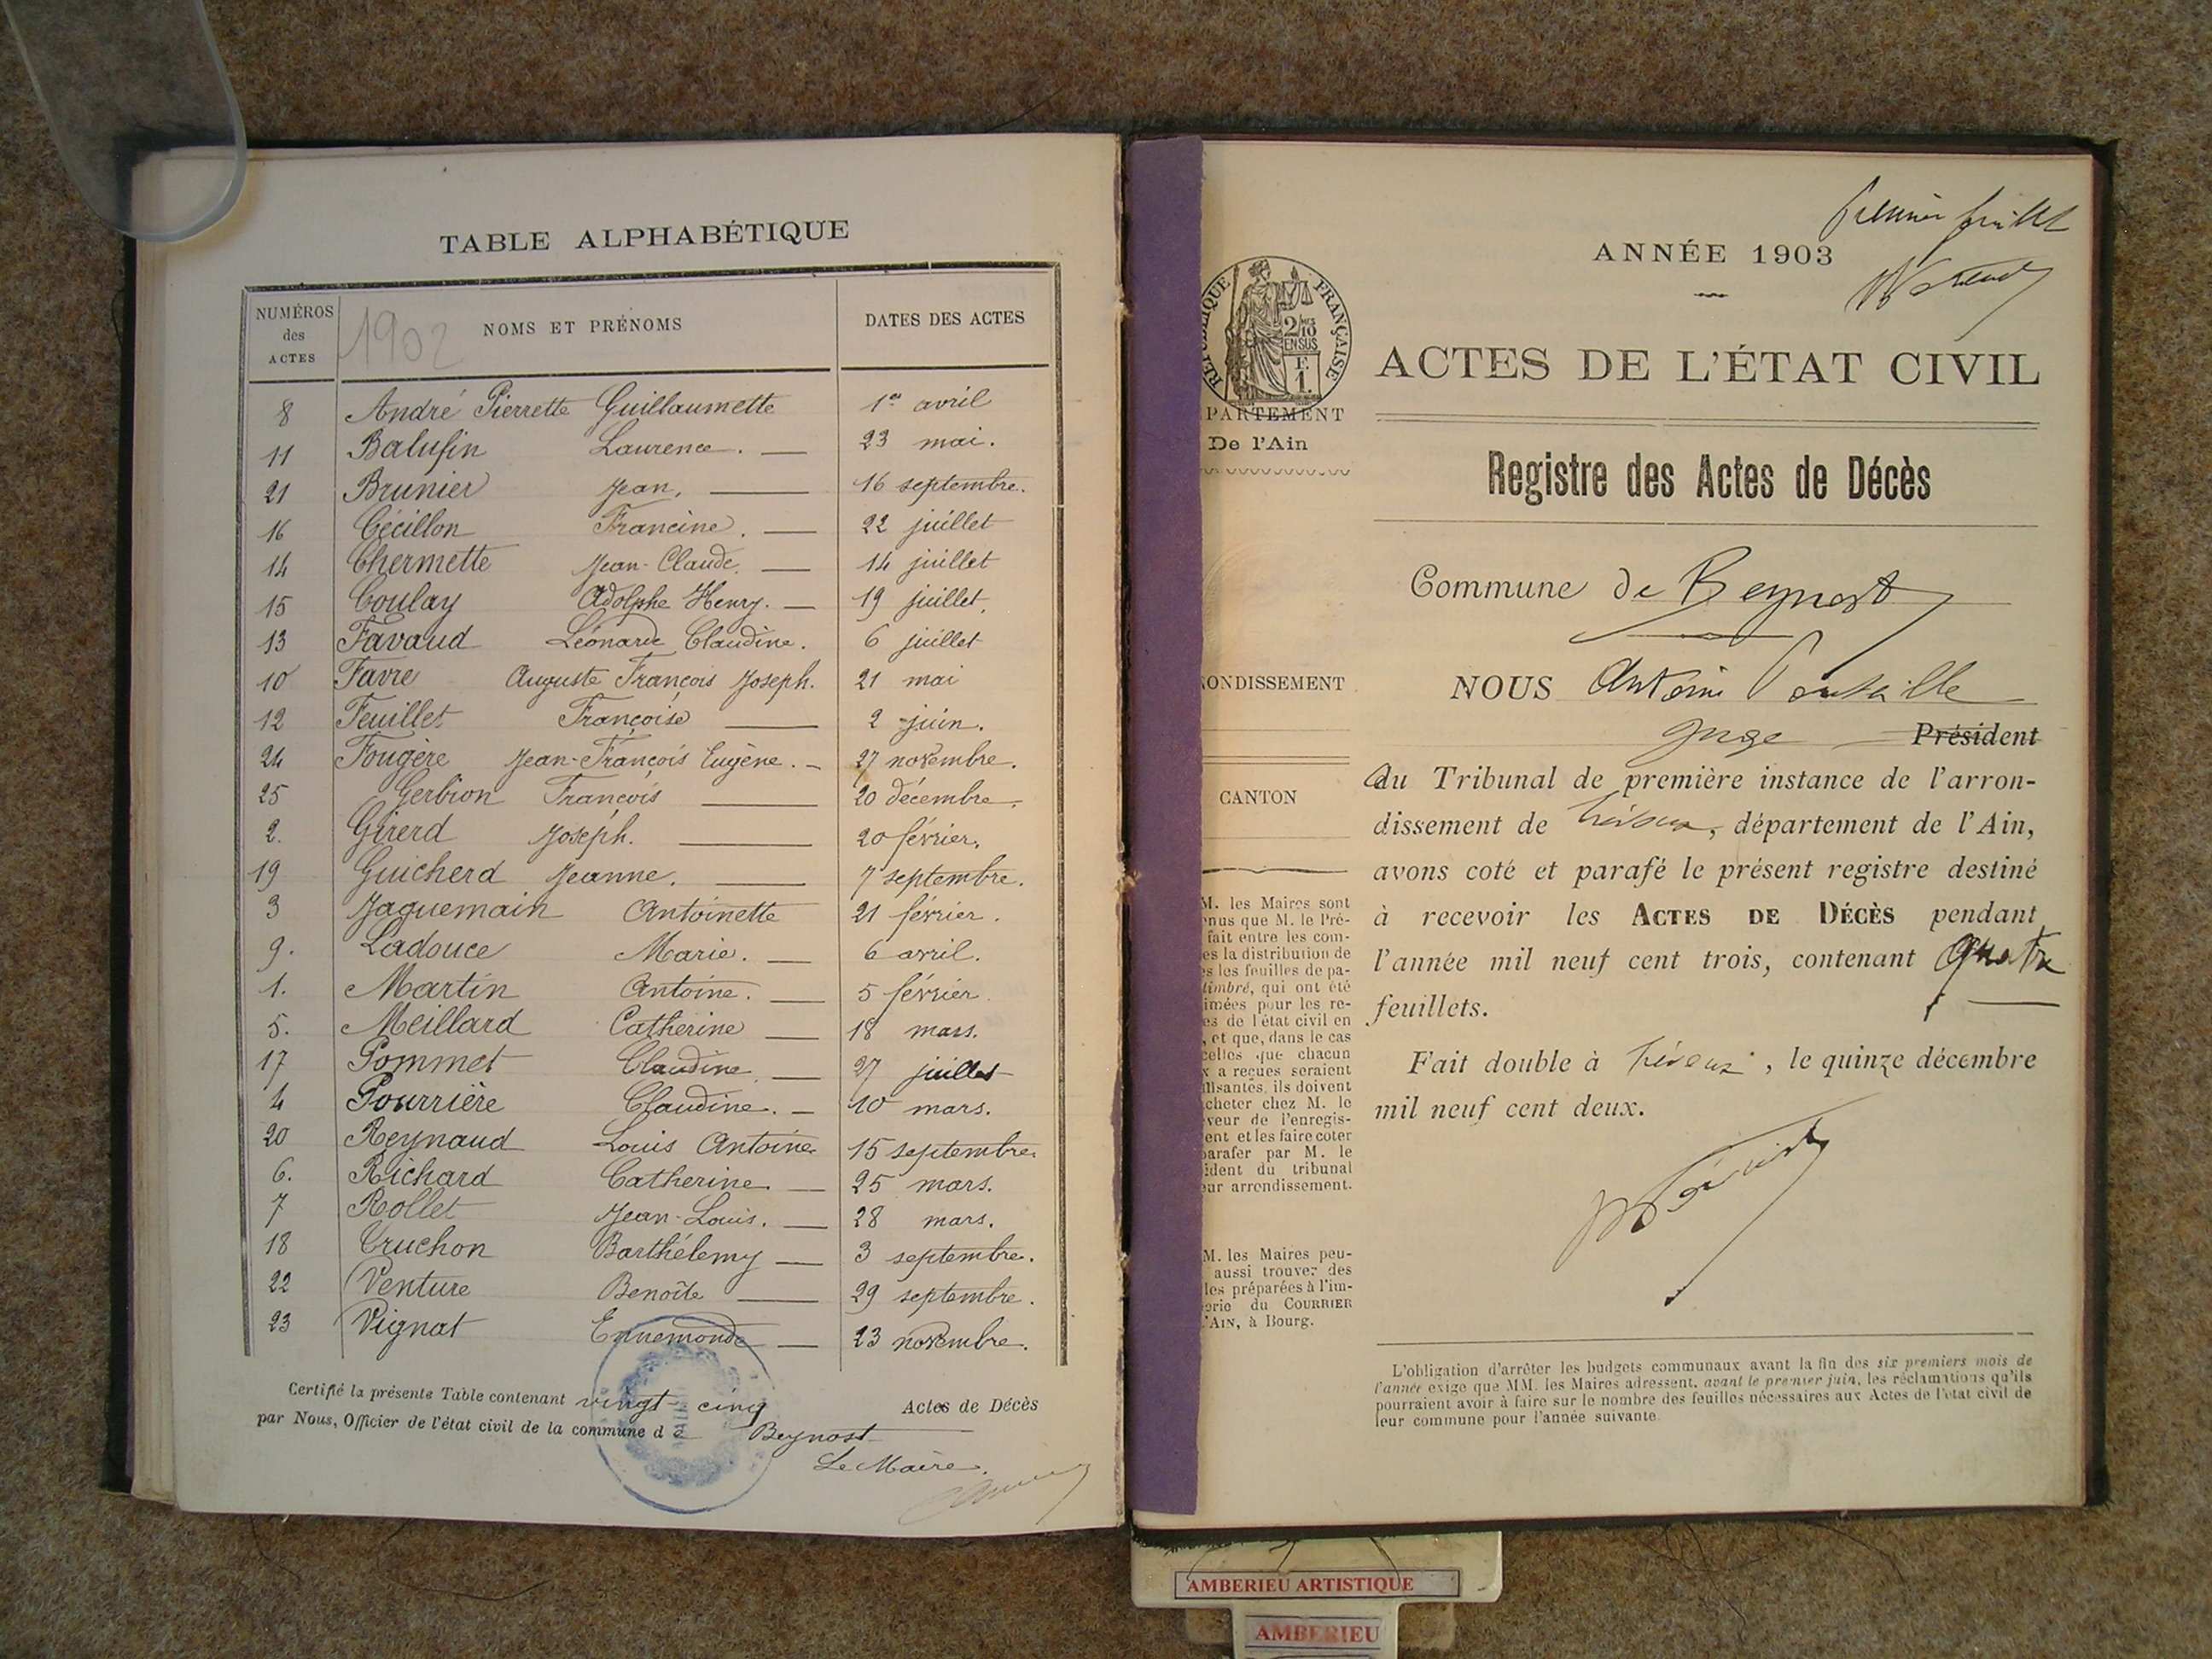 TABLE ALPHABÉTIQUE
NUMÉROS des ACTES
1902
NOMS ET PRÉNOMS
DATES DES ACTES
8 André Pierrette Guillaumette 1er avril
11 Balufin Laurence. — 23 mai.
21 Brunier Jean, — 16 septembre.
16 Cécillon Francine. — 22 juillet
14 Chermette Jean-Claude. — 14 juillet
15 Coulay Adolphe Henry. — 19 juillet.
13 Favaud Léonarde Claudine. 6 juillet
10 Favre Auguste François Joseph. 21 mai
12 Feuillet Françoise — 2 juin.
24 Fougère Jean-François Eugène. — 27 novembre.
25 Gerbion François — 20 décembre.
2. Girerd Joseph. — 20 février.
19 Guicherd Jeanne. — 7 septembre.
3 Jaquemain Antoinette 21 février.
9. Ladouce Marie. — 6 avril.
1. Martin Antoine. — 5 février.
5. Meillard Catherine — 18 mars.
17 Pommet Claudine. — 27 juillet
4 Pourrière Claudine. — 10 mars.
20 Reynaud Louis Antoine 15 septembre.
6. Richard Catherine. — 25 mars.
7 Rollet Jean-Louis. — 28 mars.
18 Truchon Barthélemy — 3 septembre.
22 Venture Benoîte — 29 septembre.
23 Vignat Ennemonde — 23 novembre.
Certifié la présente Table contenant vingt-cinq Actes de Décès
par Nous, Officier de l'état civil de la commune de Beynost
Le Maire.
premier feuillet
ANNÉE 1903
RÉPUBLIQUE FRANÇAISE
2/10 EN SUS
F. 1.
ACTES DE L'ÉTAT CIVIL
PARTEMENT
De l'Ain
Registre des Actes de Décès
Commune de Beynost
ONDISSEMENT
NOUS Antoine
Juge — Président
du Tribunal de première instance de l'arron-
CANTON
dissement de Trévoux, département de l'Ain,
avons coté et parafé le présent registre destiné
à recevoir les ACTES DE DÉCÈS pendant
l'année mil neuf cent trois, contenant quatre
feuillets.
Fait double à Trévoux, le quinze décembre
mil neuf cent deux.
M. les Maires sont
nus que M. le Pré-
fait entre les com-
es la distribution de
s les feuilles de pa-
timbré, qui ont été
imées pour les re-
es de l'état civil en
, et que, dans le cas
celles que chacun
x a reçues seraient
llisantes, ils doivent
cheter chez M. le
veur de l'enregis-
ent et les faire coter
parafer par M. le
ident du tribunal
ur arrondissement.
M. les Maires peu-
aussi trouver des
les préparées à l'im-
erie du COURRIER
'AIN, à Bourg.
L'obligation d'arrêter les budgets communaux avant la fin des six premiers mois de
l'année exige que MM. les Maires adressent, avant le premier juin, les réclamations qu'ils
pourraient avoir à faire sur le nombre des feuilles nécessaires aux Actes de l'état civil de
leur commune pour l'année suivante.
AMBERIEU ARTISTIQUE
AMBERIEU